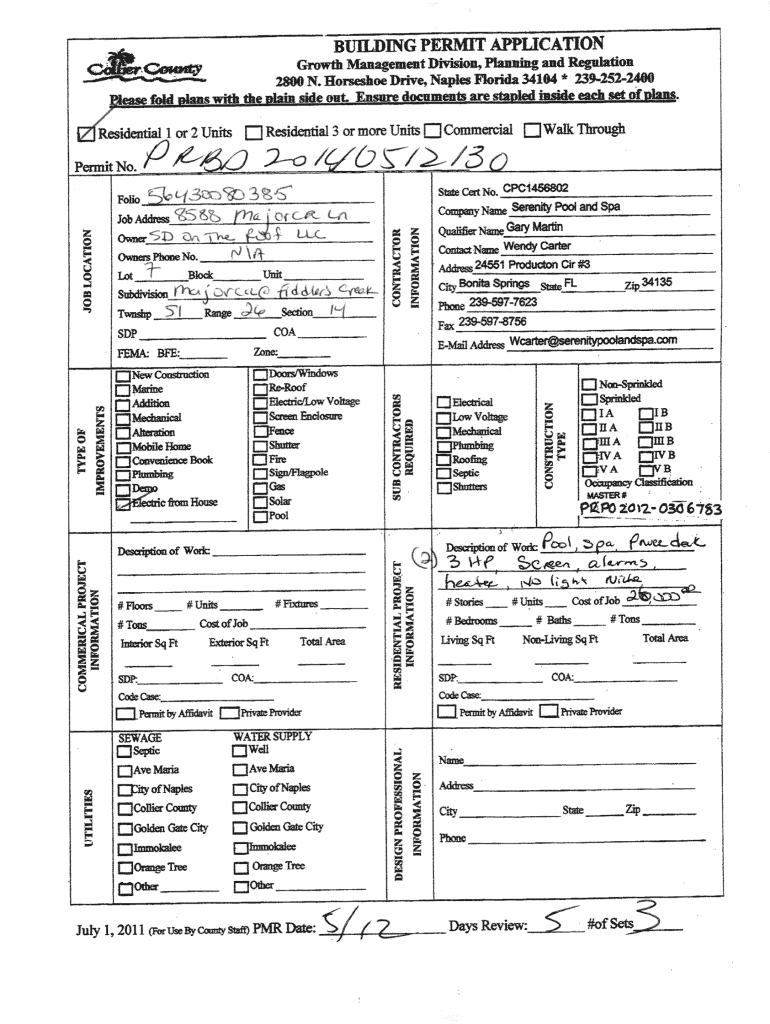 BUILDING PERMIT APPLICATION
Collier County
Growth Management Division, Planning and Regulation
2800 N. Horseshoe Drive, Naples Florida 34104 * 239-252-2400
Please fold plans with the plain side out. Ensure documents are stapled inside each set of plans.
Residential 1 or 2 Units Residential 3 or more Units Commercial Walk Through
Permit No. PRBD 20140512130
JOB LOCATION
Folio 56430080385
Job Address 8588 Majorca Ln
Owner SD on The Roof LLC
Owners Phone No. N\A
Lot 7 Block Unit
Subdivision Majorca @ fiddlers Creek
Twnshp 51 Range 26 Section 14
SDP COA
FEMA: BFE: Zone:
CONTRACTOR INFORMATION
State Cert No. CPC1456802
Company Name Serenity Pool and Spa
Qualifier Name Gary Martin
Contact Name Wendy Carter
Address 24551 Producton Cir #3
City Bonita Springs State FL Zip 34135
Phone 239-597-7623
Fax 239-597-8756
E-Mail Address Wcarter@serenitypoolandspa.com
TYPE OF IMPROVEMENTS
New Construction
Marine
Addition
Mechanical
Alteration
Mobile Home
Convenience Book
Plumbing
Demo
Electric from House
Doors/Windows
Re-Roof
Electric/Low Voltage
Screen Enclosure
Fence
Shutter
Fire
Sign/Flagpole
Gas
Solar
Pool
SUB CONTRACTORS REQUIRED
Electrical
Low Voltage
Mechanical
Plumbing
Roofing
Septic
Shutters
CONSTRUCTION TYPE
Non-Sprinkled
Sprinkled
I A I B
II A II B
III A III B
IV A IV B
V A V B
Occupancy Classification
MASTER #
PRPO 2012-0306783
COMMERICAL PROJECT INFORMATION
Description of Work:
# Floors # Units # Fixtures
# Tons Cost of Job
Interior Sq Ft Exterior Sq Ft Total Area
SDP: COA:
Code Case:
Permit by Affidavit Private Provider
RESIDENTIAL PROJECT INFORMATION
Description of Work: Pool, Spa, Paver deck
(2) 3 HP Screen, alarms,
heater, No light Niche
# Stories # Units Cost of Job
# Bedrooms # Baths # Tons
Living Sq Ft Non-Living Sq Ft Total Area
SDP: COA:
Code Case:
Permit by Affidavit Private Provider
UTILITIES
SEWAGE
Septic
Ave Maria
City of Naples
Collier County
Golden Gate City
Immokalee
Orange Tree
Other
WATER SUPPLY
Well
Ave Maria
City of Naples
Collier County
Golden Gate City
Immokalee
Orange Tree
Other
DESIGN PROFESSIONAL INFORMATION
Name
Address
City State Zip
Phone
July 1, 2011 (For Use By County Staff) PMR Date: 5/12 Days Review: 5 #of Sets 3